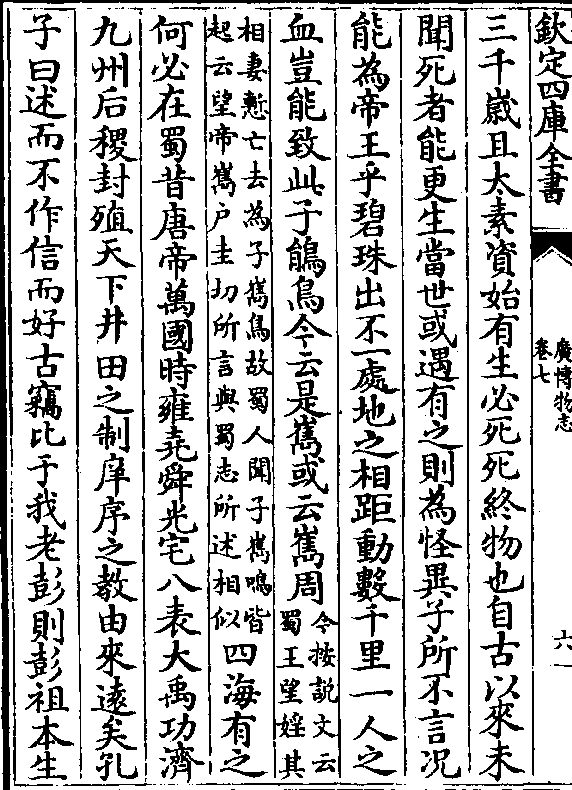 欽定四庫全書
廣博物志
卷七
六一
三千歲且太素資始有生必死死終物也自古以來未
聞死者能更生當世或遇有之則為怪異子所不言況
能為帝王乎碧珠出不一處地之相距動數千里一人之
血豈能致此子鵑鳥今云是嶲或云嶲周
今按説文云
蜀王望婬其
相妻慙亡去為子嶲鳥故蜀人聞子嶲鳴皆
起云望帝嶲户圭切所言與蜀志所述相似
四海有之
何必在蜀昔唐帝萬國時雍堯舜光宅八表大禹功濟
九州后稷封殖天下井田之制庠序之教由來逺矣孔
子曰述而不作信而好古竊比于我老彭則彭祖本生